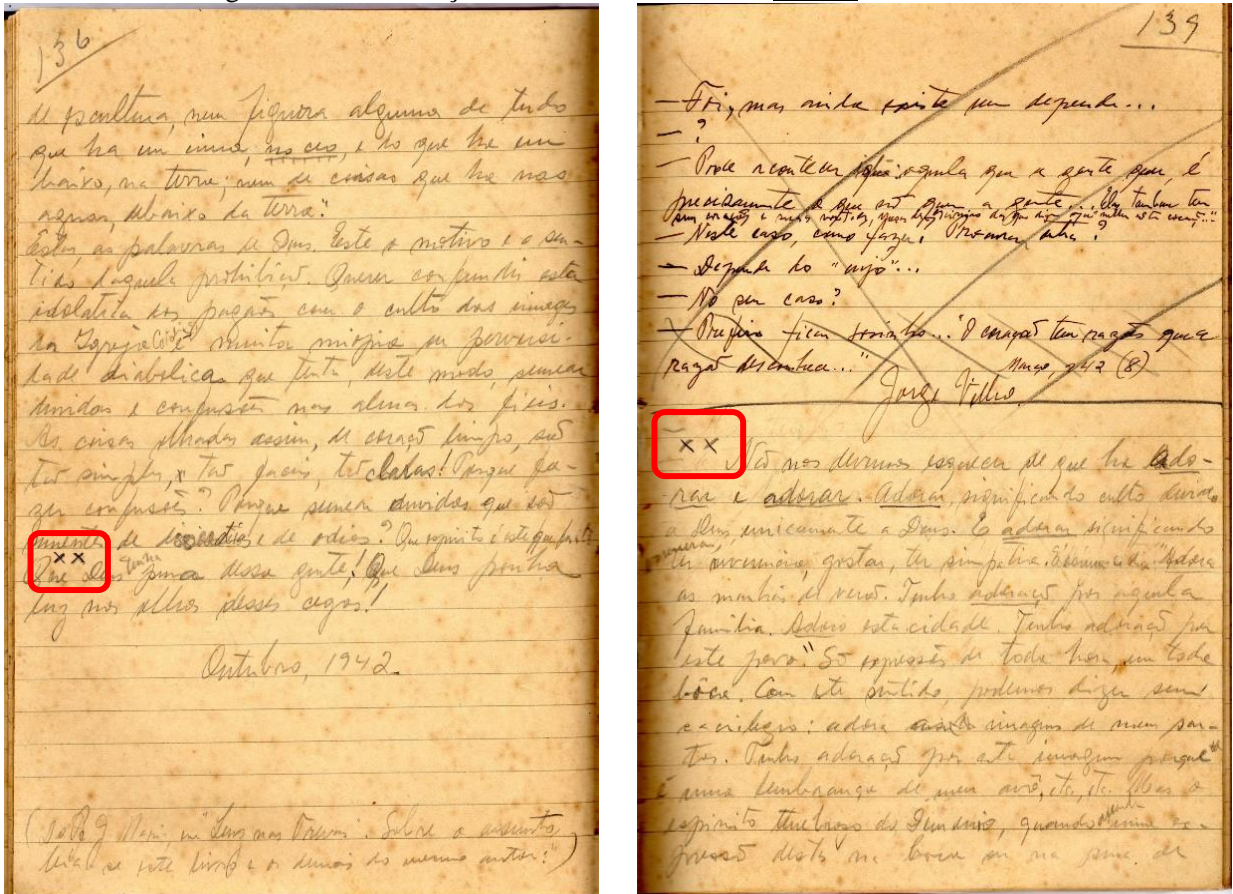 136
de escultura, nem figura alguma de tudo
que ha em cima, no ceo, e do que ha em
baixo, na terra; nem de coisas que ha nas
aguas, debaixo da terra."
Estas, as palavras de Deus. Este o motivo e o sen-
tido daquela prohibição. Querer confundir esta
idolatria dos pagãos com o culto das imagens
da Igreja é muita miopia ou perversi-
dade diabolica que tenta, deste modo, semear
duvidas e confusões nas almas dos fieis.
As coisas olhadas assim, de coração limpo, são
tão simples, tão faceis, tão claras! Porque fa-
zer confusões? Porque semear duvidas que são
sementes de e de odios? Que espirito é este que
xx
Que Deus tenha pena dessa gente! Que Deus ponha
luz nos olhos desses cegos!
Outubro, 1942.
(Do Pe. em "Luz nas Trevas". Sobre o assunto,
leia-se este livro e os demais do mesmo autor.")
139
— Foi, mas ainda existe um depende...
— ?
— Pode acontecer que aquela que a gente quer, é
precisamente a que não quer a gente... Elas tambem tem
seu coração e
— Neste caso, como fazer? Procurar outra?
— Depende do "anjo"...
— No seu caso?
— Prefiro ficar sosinho... "O coração tem razões que a
razão desconhece..." Março, 942 (8)
Jorge Velho
xx
— Não nos devemos esquecer de que ha ado-
rar e adorar. Adorar, significando culto devido
a Deus, unicamente a Deus. E adorar significando
venerar,
ter reverencia, gostar, ter simpatia. "Adoro
as manhãs de verão. Tenho adoração por aquela
familia. Adoro esta cidade. Tenho adoração por
este povo." São expressões de toda hora, em toda
bôca. Com este sentido, podemos dizer sem
sacrilegio: adoro imagens de meus san-
tos. Tenho adoração por esta imagem porque
é uma lembrança de meu avô, etc, etc. Mas o
espirito tenebroso do Demonio, quando
pressão desta na boca ou na pena de